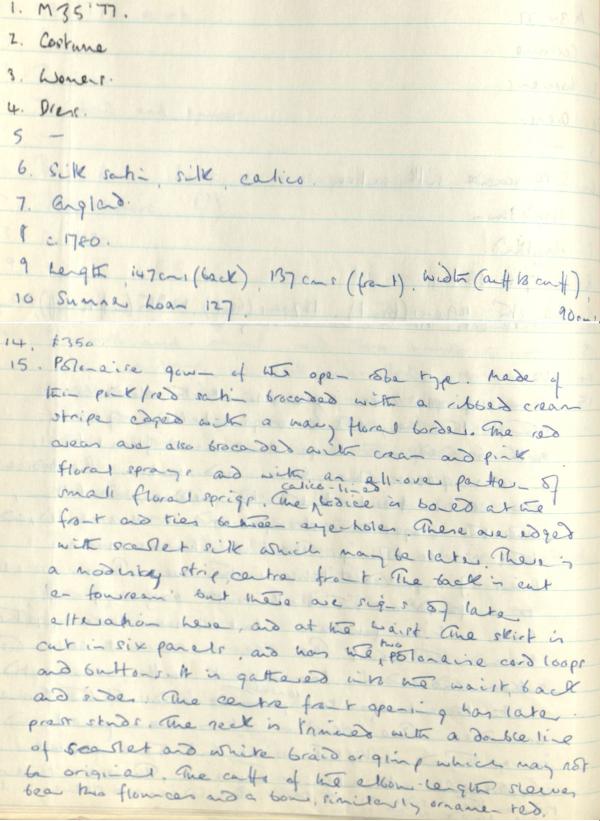 1. M35'77.
2. Costume
3. Womens.
4. Dress.
5 —
6. Silk satin, silk, calico.
7. England.
8 c.1780.
9 Length 147cms (back), 137 cms (front). Width (cuff to cuff)
90cms.
10 Summer Loan 127.
14. £350
15. Polonaise gown of the open robe type. Made of
thin pink/red satin brocaded with a ribbed cream
stripe edged with a wavy floral border. The red
areas are also brocaded with cream and pink
floral sprays and with an all-over pattern of
small floral sprigs. The calico-lined bodice is boned at the
front and ties between eye-holes. These are edged
with scarlet silk which may be later. There is
a modesty strip centre front. The back is cut
'en fourreau' but there are signs of later
alteration here, and at the waist. The skirt is
cut in six panels, and has the two polonaise cord loops
and buttons. It is gathered into the waist, back
and sides. The centre front opening has later
press studs. The neck is trimmed with a double line
of scarlet and white braid or gimp which may not
be original. The cuffs of the elbow-length sleeves
bear two flounces and a bow, similarly ornamented.